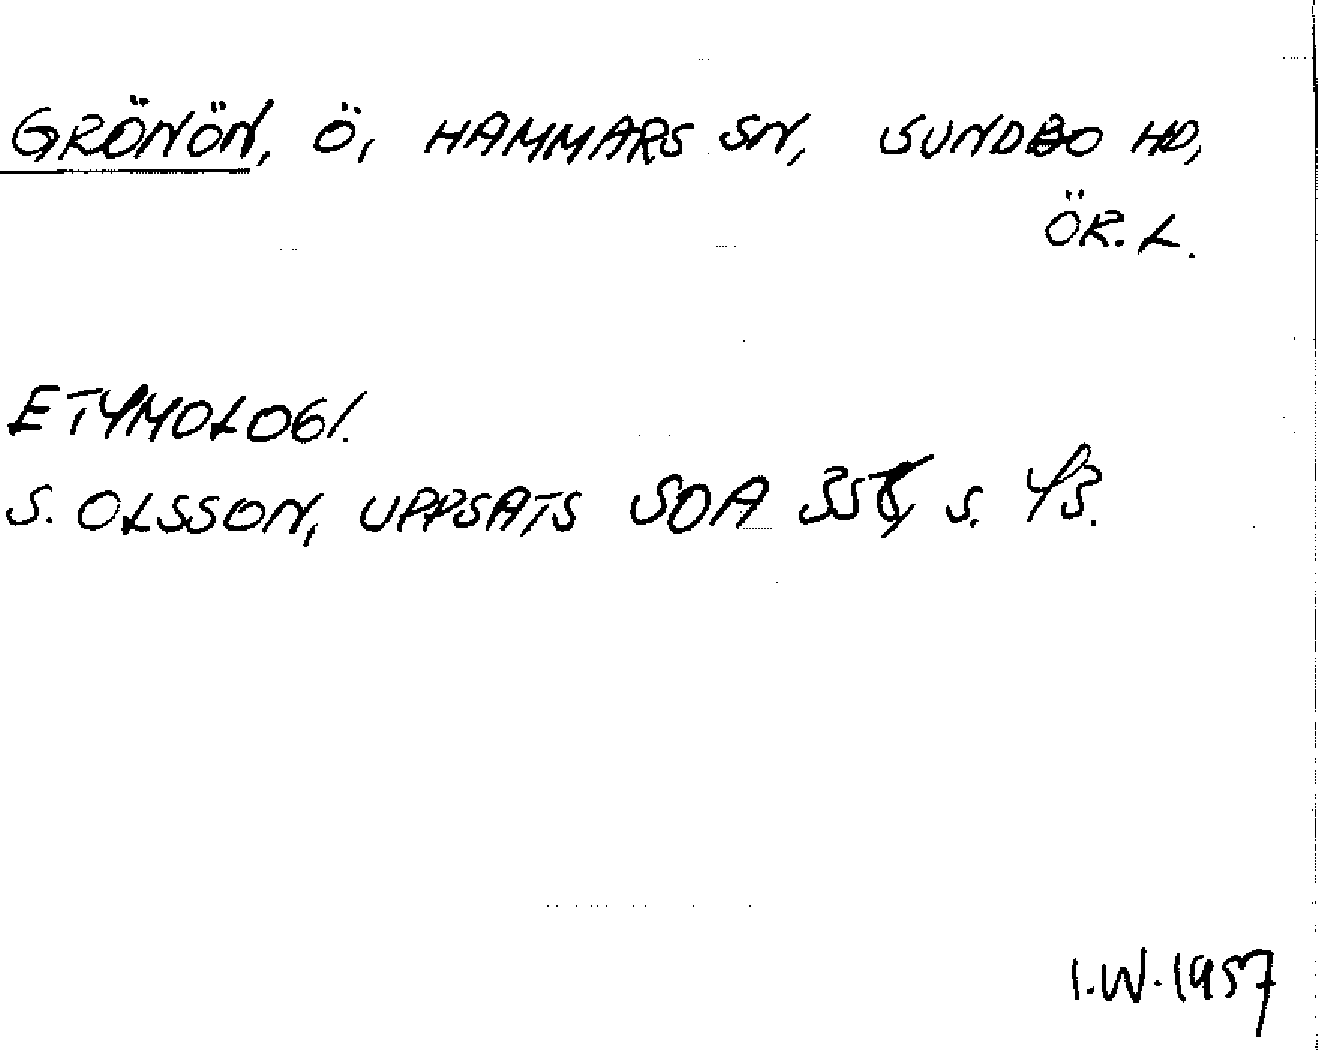 GRÖNÖN, Ö, HAMMARS SN, SUNDBO HD,
ÖR. L.
ETYMOLOGI.
S. OLSSON, UPPSATS SOA S.
I.W. 1957